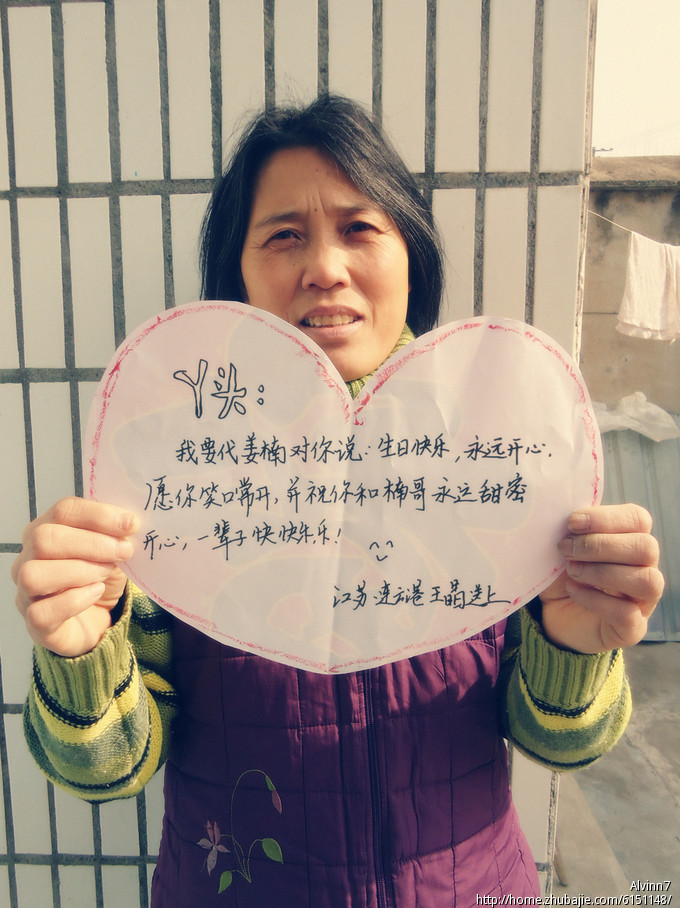 丫头：
我要代姜楠对你说：生日快乐，永远开心．
愿你笑口常开，并祝你和楠哥永远甜密
开心，一辈子快快乐乐！
江苏连云港王晶送上
Alvinn7
http://home.zhubajie.com/6151148/